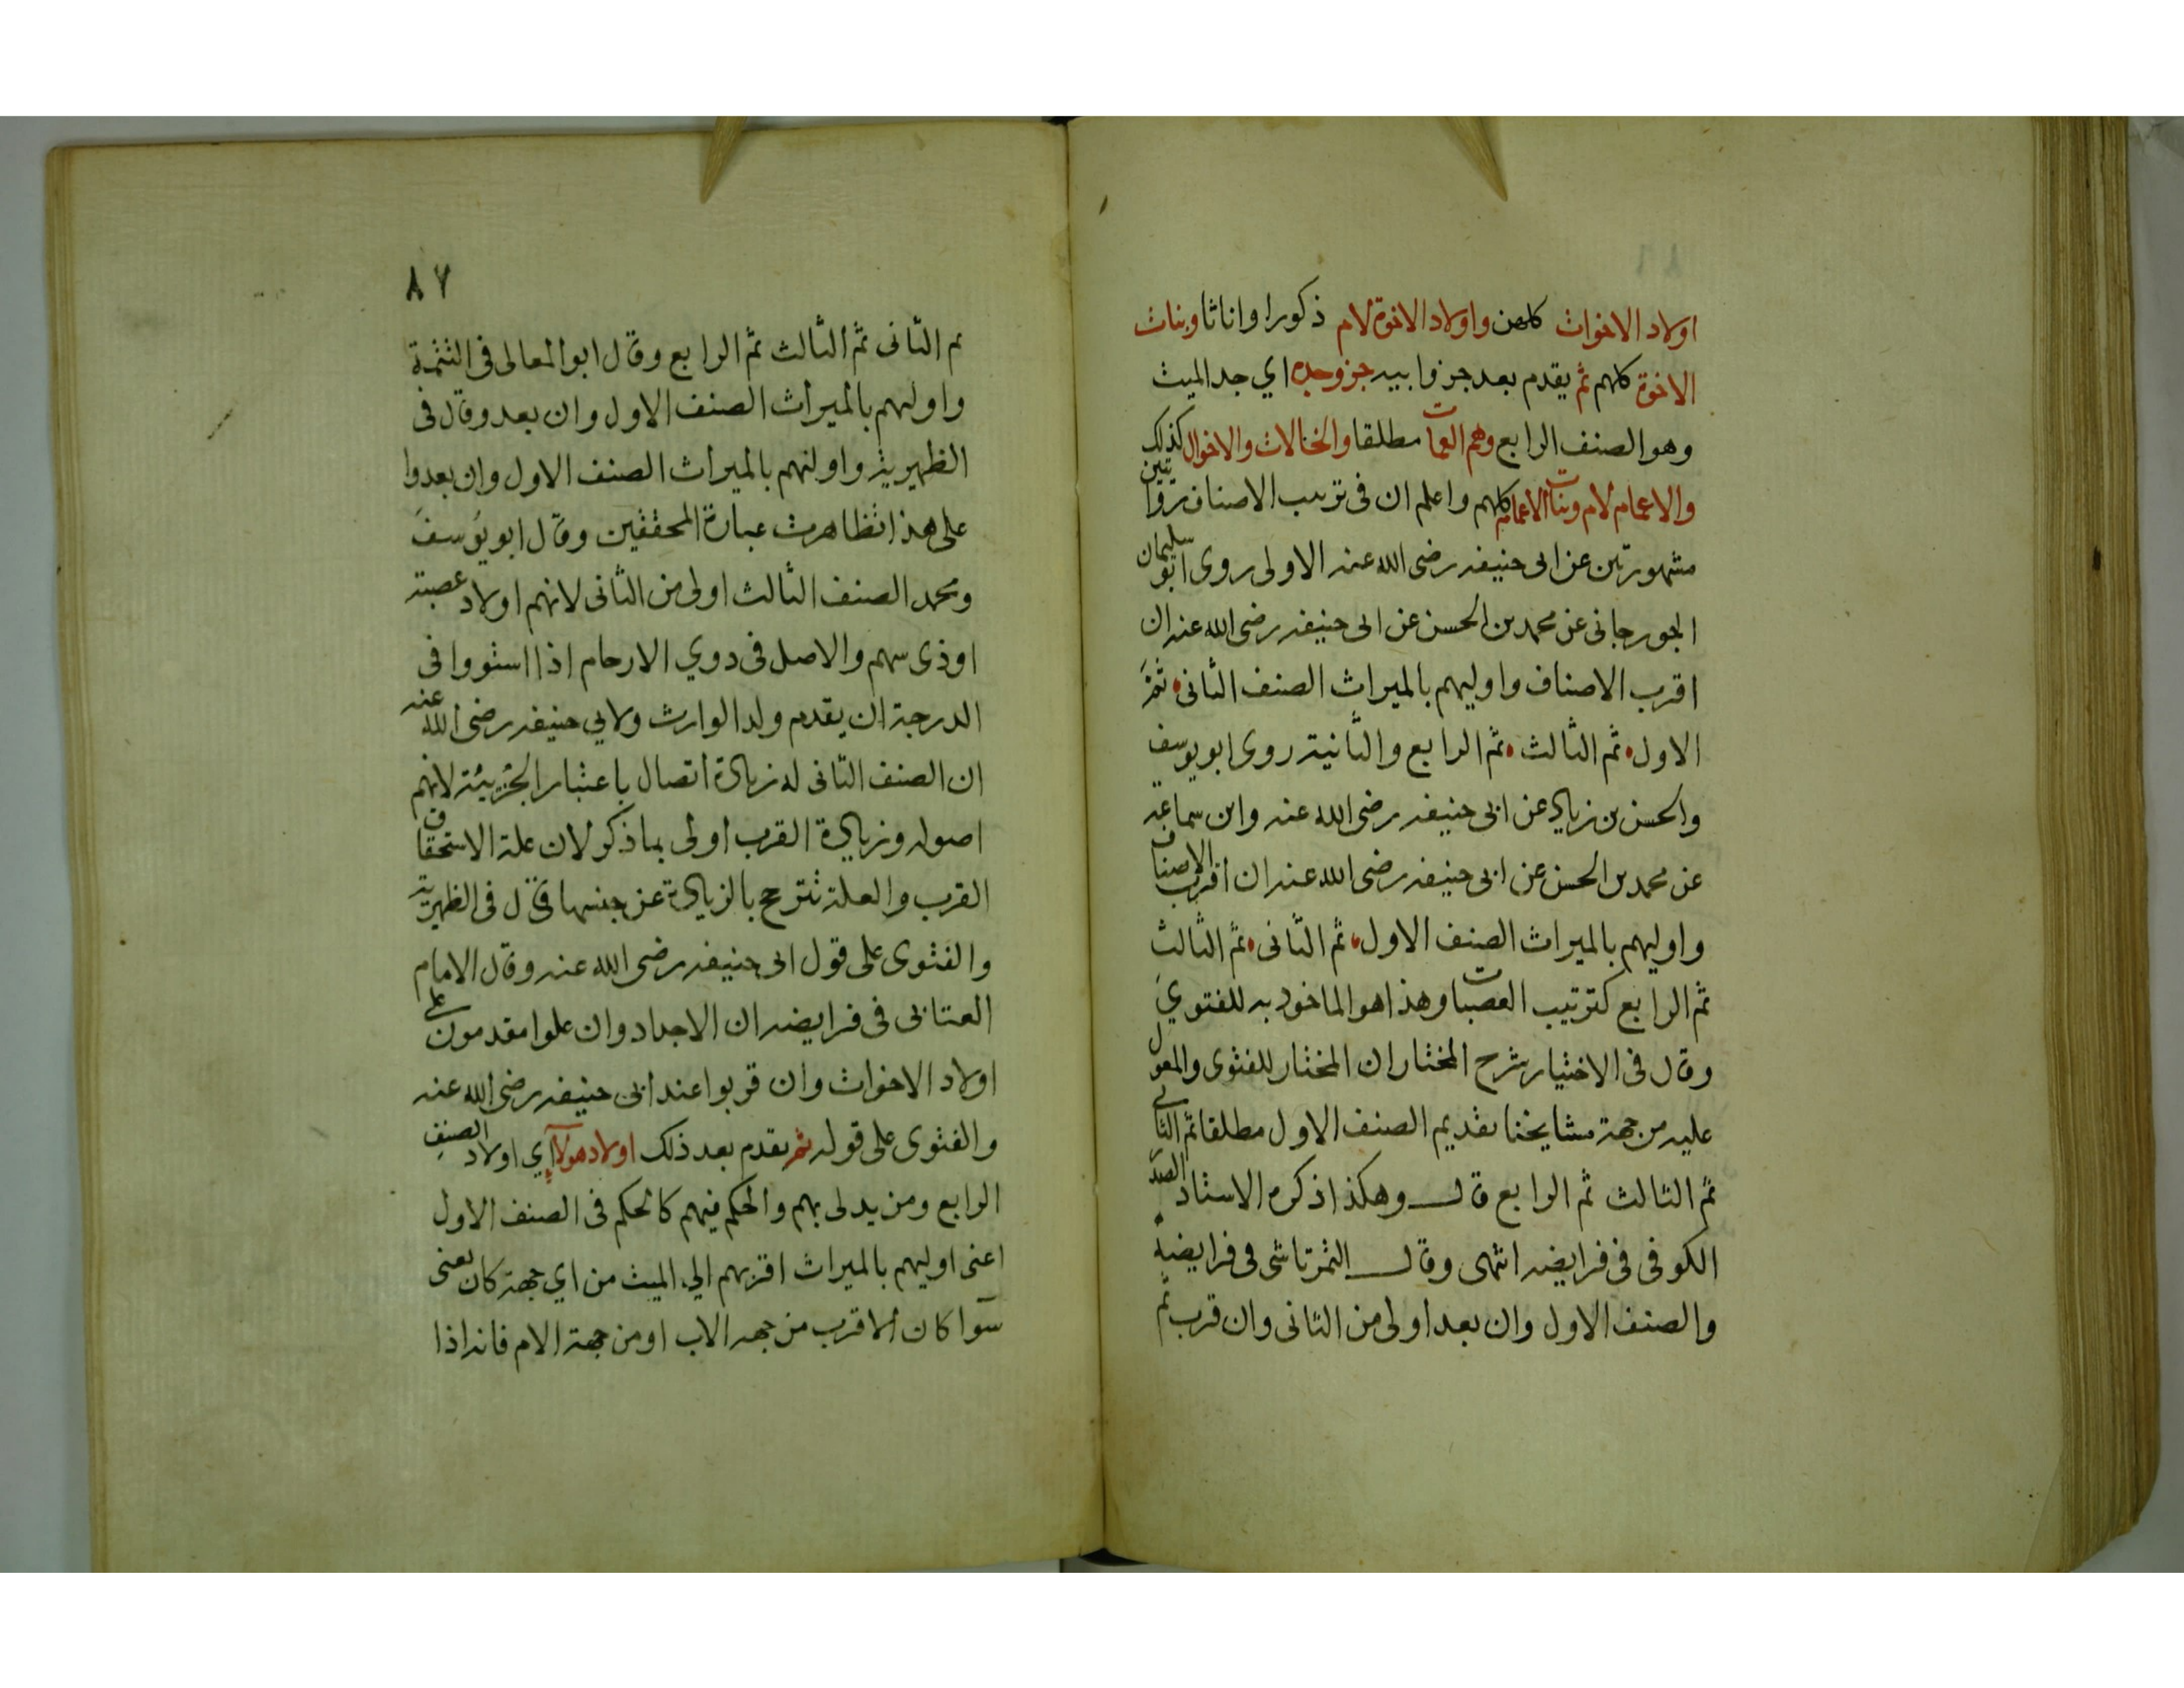 اولاد الاخوات كلهن واولاد الاخوة لام ذكورا واناثا وبنات
الاخوة كلهم ثم يقدم بعد جزؤ ابيه جزؤ جده اي جد الميت
وهو الصنف الرابع وهم العمات مطلقا والخالات والاخوال كذلك
والاعمام لام وبنات الاعمام كلهم واعلم ان فى ترتيب الاصناف روايتين
مشهورتين عن ابى حنيفه رضى الله عنه الاولى روى ابو سليمان
الجورجانى عن محمد بن الحسن عن ابى حنيفه رضى الله عنه ان
اقرب الاصناف واوليهم بالميراث الصنف الثانى ثم
الاول ثم الثالث ثم الرابع والثانية روى ابو يوسف
والحسن بن زياد عن ابى حنيفه رضى الله عنه وابن سماعة
عن محمد بن الحسن عن ابى حنيفه رضى الله عنه ان اقرب الاصناف
واوليهم بالميراث الصنف الاول ثم الثانى ثم الثالث
ثم الرابع كترتيب العصبات وهذا هو الماخوذ به للفتوي
وقال فى الاختيار شرح المختار ان المختار للفتوى والمعول
عليه من جهة مشايخنا تقديم الصنف الاول مطلقا ثم الثانى
ثم الثالث ثم الرابع قال وهكذا ذكره الاستاد الصدر
الكوفى فى فرايضه انتهى وقال التمرتاشى فى فرايضه
والصنف الاول وان بعد اولى من الثانى وان قرب ثم
٨٧
ثم الثانى ثم الثالث ثم الرابع وقال ابو المعالى فى التتمة
واولهم بالميراث الصنف الاول وان بعد وقال فى
الظهيرية واولهم بالميراث الصنف الاول وان بعدوا
على هذا تظاهرت عبارة المحققين وقال ابو يوسف
ومحمد الصنف الثالث اولى من الثانى لانهم اولاد عصبته
اوذى سهم والاصل فى دوي الارحام اذا استووا فى
الدرجة ان يقدم ولد الوارث ولابي حنيفه رضى الله عنه
ان الصنف الثانى له زيادة اتصال باعتبار الجزيئة لانهم
اصوله وزيادة القرب اولى بما ذكر لان علة الاستحقاق
القرب والعلة تترجح بالزيادة عن جنسها قال فى الظهيرية
والفتوى على قول ابى حنيفه رضى الله عنه وقال الامام
العتابى فى فرايضه ان الاجداد وان علوا مقدمون على
اولاد الاخوات وان قربوا عند ابى حنيفه رضى الله عنه
والفتوى على قوله ثم يقدم بعد ذلك اولاد هولآ اي اولاد الصنف
الرابع ومن يدلى بهم والحكم فيهم كالحكم فى الصنف الاول
اعنى اوليهم بالميراث اقربهم الي الميت من اي جهة كان يعنى
سوآ كان الاقرب من جهه الاب او من جهة الام فانه اذا